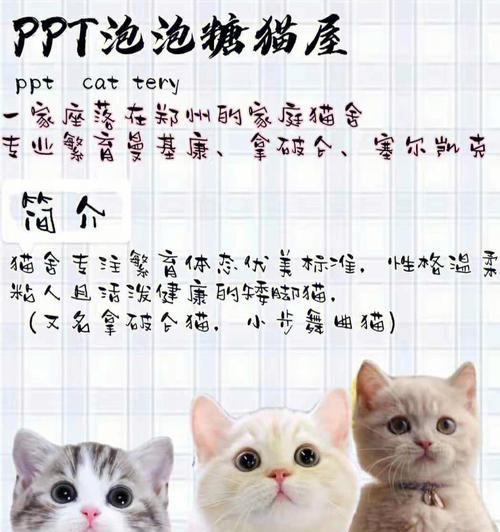 PPT泡泡糖猫屋
ppt cat tery
一家座落在郑州的家庭猫舍
专业繁育曼基康、拿破仑、塞尔凯克
简介
猫舍专注繁育体态优美标准，性格温柔
粘人且活泼健康的矮脚猫.
（又名拿破仑猫，小步舞曲猫）